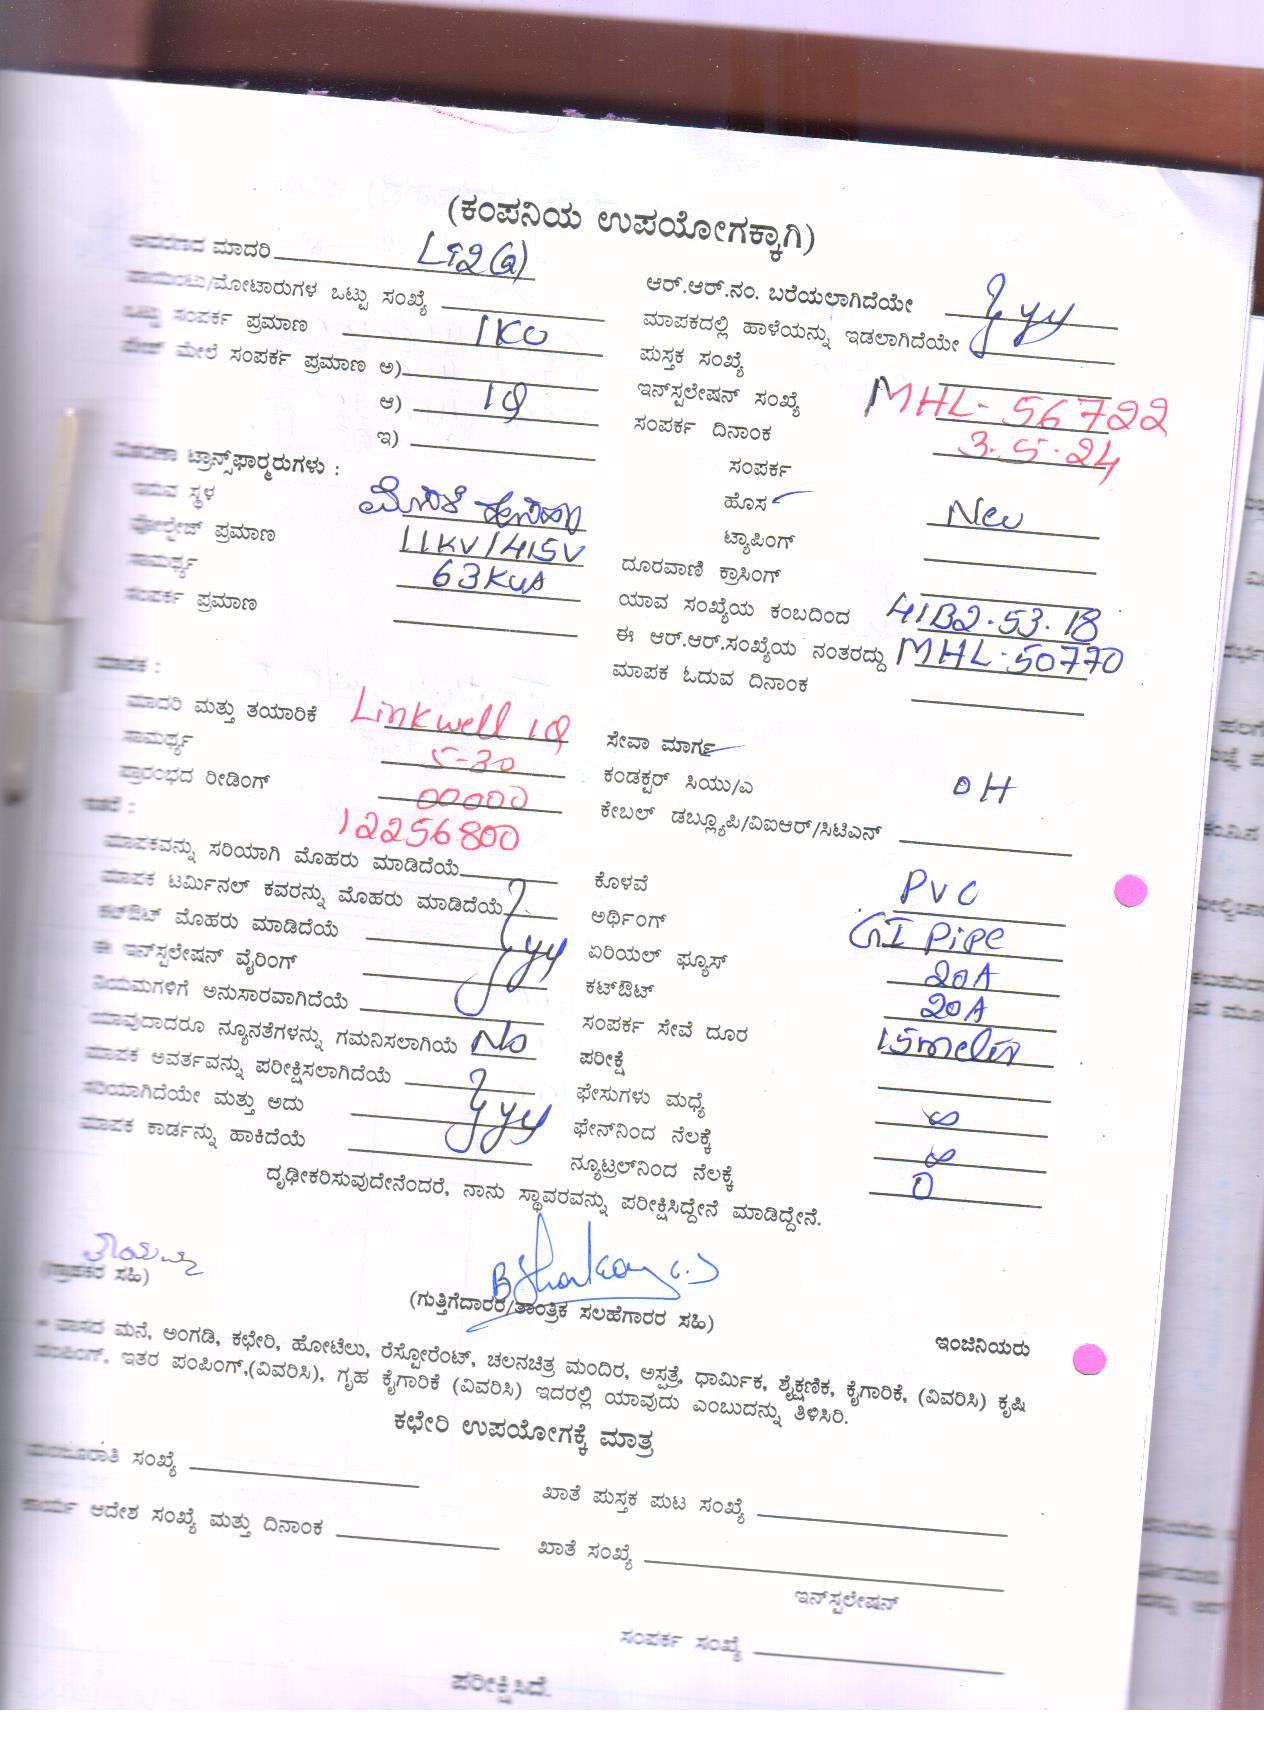 (ಕಂಪನಿಯ ಉಪಯೋಗಕ್ಕಾಗಿ)
ಆವರಣದ ಮಾದರಿ LT2(a)
ಪಾಯಿಂಟು/ಮೋಟಾರುಗಳ ಒಟ್ಟು ಸಂಖ್ಯೆ
ಒಟ್ಟು ಸಂಪರ್ಕ ಪ್ರಮಾಣ 1KW
ಫೇಜ್ ಮೇಲೆ ಸಂಪರ್ಕ ಪ್ರಮಾಣ ಅ)
ಆ) 1Q
ಇ)
ವಿತರಣಾ ಟ್ರಾನ್ಸ್‌ಫಾರ್ಮರುಗಳು :
ಇರುವ ಸ್ಥಳ
ವೋಲ್ಟೇಜ್ ಪ್ರಮಾಣ 11KV/415V
ಸಾಮರ್ಥ್ಯ 63KVA
ಸಂಪರ್ಕ ಪ್ರಮಾಣ
ಮಾಪಕ :
ಮಾದರಿ ಮತ್ತು ತಯಾರಿಕೆ Linkwell 1Q
ಸಾಮರ್ಥ್ಯ 5-30
ಪ್ರಾರಂಭದ ರೀಡಿಂಗ್ 00000
ಇತರೆ : 12256800
ಮಾಪಕವನ್ನು ಸರಿಯಾಗಿ ಮೊಹರು ಮಾಡಿದೆಯೆ
ಮಾಪಕ ಟರ್ಮಿನಲ್ ಕವರನ್ನು ಮೊಹರು ಮಾಡಿದೆಯೆ
ಕಟ್‌ಔಟ್ ಮೊಹರು ಮಾಡಿದೆಯೆ yy
ಈ ಇನ್‌ಸ್ಟಲೇಷನ್ ವೈರಿಂಗ್
ನಿಯಮಗಳಿಗೆ ಅನುಸಾರವಾಗಿದೆಯೆ
ಯಾವುದಾದರೂ ನ್ಯೂನತೆಗಳನ್ನು ಗಮನಿಸಲಾಗಿಯೆ No
ಮಾಪಕ ಅವರ್ತವನ್ನು ಪರೀಕ್ಷಿಸಲಾಗಿದೆಯೆ
ಸರಿಯಾಗಿದೆಯೇ ಮತ್ತು ಅದು yyy
ಮಾಪಕ ಕಾರ್ಡನ್ನು ಹಾಕಿದೆಯೆ
ಆರ್.ಆರ್.ನಂ. ಬರೆಯಲಾಗಿದೆಯೇ yy
ಮಾಪಕದಲ್ಲಿ ಹಾಳೆಯನ್ನು ಇಡಲಾಗಿದೆಯೇ
ಪುಸ್ತಕ ಸಂಖ್ಯೆ
ಇನ್‌ಸ್ಟಲೇಷನ್ ಸಂಖ್ಯೆ MHL-56722
ಸಂಪರ್ಕ ದಿನಾಂಕ 3.5.24
ಸಂಪರ್ಕ
ಹೊಸ New
ಟ್ಯಾಪಿಂಗ್
ದೂರವಾಣಿ ಕ್ರಾಸಿಂಗ್
ಯಾವ ಸಂಖ್ಯೆಯ ಕಂಬದಿಂದ 41B2.53.18
ಈ ಆರ್.ಆರ್.ಸಂಖ್ಯೆಯ ನಂತರದ್ದು MHL-50770
ಮಾಪಕ ಓದುವ ದಿನಾಂಕ
ಸೇವಾ ಮಾರ್ಗ
ಕಂಡಕ್ಟರ್ ಸಿಯು/ಎ OH
ಕೇಬಲ್ ಡಬ್ಲ್ಯೂಪಿ/ವಿಐಆರ್/ಸಿಟಿಎನ್
ಕೊಳವೆ PVC
ಅರ್ಥಿಂಗ್ GI Pipe
ಏರಿಯಲ್ ಫ್ಯೂಸ್ 20A
ಕಟ್‌ಔಟ್ 20A
ಸಂಪರ್ಕ ಸೇವೆ ದೂರ 15meter
ಪರೀಕ್ಷೆ
ಫೇಸುಗಳು ಮಧ್ಯೆ ∞
ಫೇಸ್‌ನಿಂದ ನೆಲಕ್ಕೆ ∞
ನ್ಯೂಟ್ರಲ್‌ನಿಂದ ನೆಲಕ್ಕೆ 0
ದೃಢೀಕರಿಸುವುದೇನೆಂದರೆ, ನಾನು ಸ್ಥಾವರವನ್ನು ಪರೀಕ್ಷಿಸಿದ್ದೇನೆ ಮಾಡಿದ್ದೇನೆ.
(ಗ್ರಾಹಕರ ಸಹಿ)
(ಗುತ್ತಿಗೆದಾರರ/ತಾಂತ್ರಿಕ ಸಲಹೆಗಾರರ ಸಹಿ)
ಇಂಜಿನಿಯರು
* ವಾಸದ ಮನೆ, ಅಂಗಡಿ, ಕಛೇರಿ, ಹೋಟೆಲು, ರೆಸ್ಟೋರೆಂಟ್, ಚಲನಚಿತ್ರ ಮಂದಿರ, ಆಸ್ಪತ್ರೆ, ಧಾರ್ಮಿಕ, ಶೈಕ್ಷಣಿಕ, ಕೈಗಾರಿಕೆ, (ವಿವರಿಸಿ) ಕೃಷಿ
ಪಂಪಿಂಗ್, ಇತರ ಪಂಪಿಂಗ್,(ವಿವರಿಸಿ), ಗೃಹ ಕೈಗಾರಿಕೆ (ವಿವರಿಸಿ) ಇದರಲ್ಲಿ ಯಾವುದು ಎಂಬುದನ್ನು ತಿಳಿಸಿರಿ.
ಕಛೇರಿ ಉಪಯೋಗಕ್ಕೆ ಮಾತ್ರ
ಮಂಜೂರಾತಿ ಸಂಖ್ಯೆ
ಖಾತೆ ಪುಸ್ತಕ ಪುಟ ಸಂಖ್ಯೆ
ಕಾರ್ಯ ಆದೇಶ ಸಂಖ್ಯೆ ಮತ್ತು ದಿನಾಂಕ
ಖಾತೆ ಸಂಖ್ಯೆ
ಇನ್‌ಸ್ಟಲೇಷನ್
ಸಂಪರ್ಕ ಸಂಖ್ಯೆ
ಪರೀಕ್ಷಿಸಿದೆ.